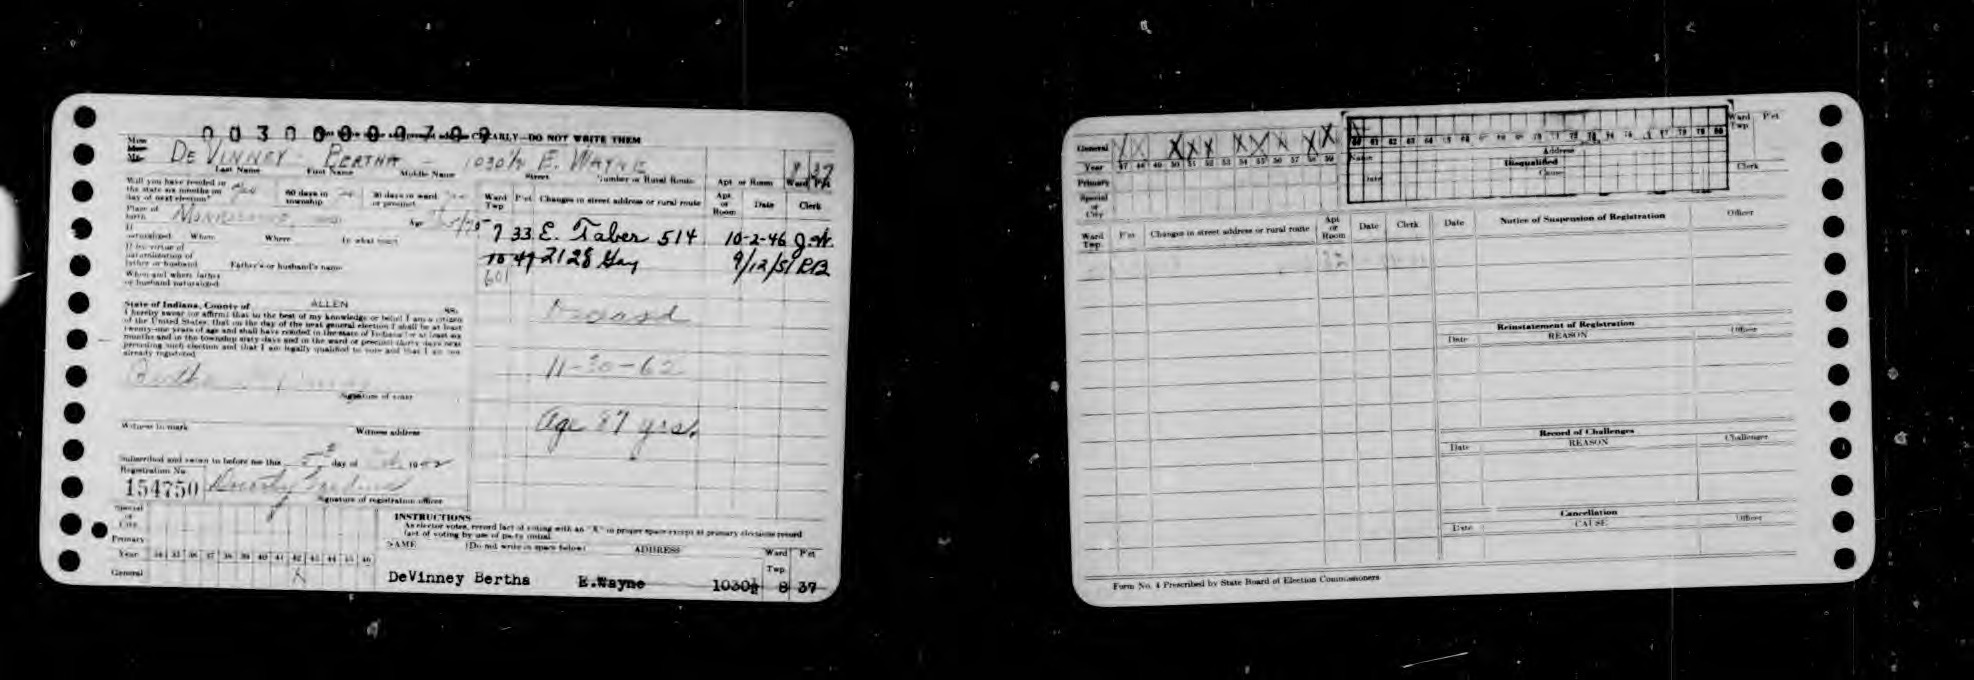 0030000709
CLEARLY—DO NOT WRITE THEM
DeVinney - Bertha - 1030½ E. Wayne 8 37
Last Name First Name Middle Name Street Number or Rural Route Apt or Room Ward Pct
Will you have resided in the state six months on day of next election? Yes 60 days in township 30 days in ward or precinct
Ward Twp Pct Changes in street address or rural route Apt or Room Date Clerk
Place of birth Age
7 33 E. Taber 514 10-2-46 J.W.
If naturalized When Where In what court
10 47 2128 Gay 9/12/51 RB
601
If by virtue of naturalization of father or husband Father's or husband's name
When and where father or husband naturalized
State of Indiana, County of ALLEN SS:
I hereby swear (or affirm) that to the best of my knowledge or belief I am a citizen
of the United States, that on the day of the next general election I shall be at least
twenty-one years of age and shall have resided in the state of Indiana for at least six
months and in the township sixty days and in the ward or precinct thirty days next
preceding such election and that I am legally qualified to vote and that I am not
already registered
11-30-62
Bertha
Signature of voter
Age 87 yrs.
Witness to mark Witness address
Subscribed and sworn to before me this 5 day of 19
Registration No.
154750 Dorothy
Signature of registration officer
Special or City
Primary
Year 34 35 36 37 38 39 40 41 42 43 44 45 46
General X
INSTRUCTIONS
As elector votes, record fact of voting with an "X" in proper space except at primary elections record
fact of voting by use of party initial
NAME (Do not write in space below) ADDRESS Ward Twp Pct
DeVinney Bertha E.Wayne 1030½ 8 37
General X X X X X X X X X X X
Year 47 48 49 50 51 52 53 54 55 56 57 58 59
Primary
Special or City
60 61 62 63 64 65 66 67 68 69 70 71 72 73 74 75 76 77 78 79 80
Ward Twp Pct
Name Address
Disqualified
Date Cause
Clerk
Ward Twp. Pct Changes in street address or rural route Apt or Room Date Clerk
Date Notice of Suspension of Registration Officer
Reinstatement of Registration
Date REASON Officer
Record of Challenges
Date REASON Challenger
Cancellation
Date CAUSE Officer
Form No. 4 Prescribed by State Board of Election Commissioners